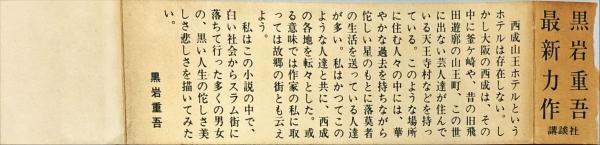 黒岩重吾
最新力作
講談社
西成山王ホテルという
ホテルは存在しない。し
かし大阪の西成は、その
中に釜ケ崎や、昔の旧飛
田遊廓の山王町、この世
に出ない芸人達が住んで
いる天王寺村などを持っ
ている。このような場所
に住む人々の中には、華
やかな過去を持ちながら
佗しい星のもとに落莫者
の生活を送っている人達
が多い。私はかつてこの
ような人達と共に、西成
の各地を転々とした。或
る意味では作家の私に取
っては故郷の街とも云え
よう。
私はこの小説の中で、
白い社会からスラム街に
落ちて行った多くの男女
の、黒い人生の佗しさ美
しさ悲しさを描いてみた
い。
黒岩重吾